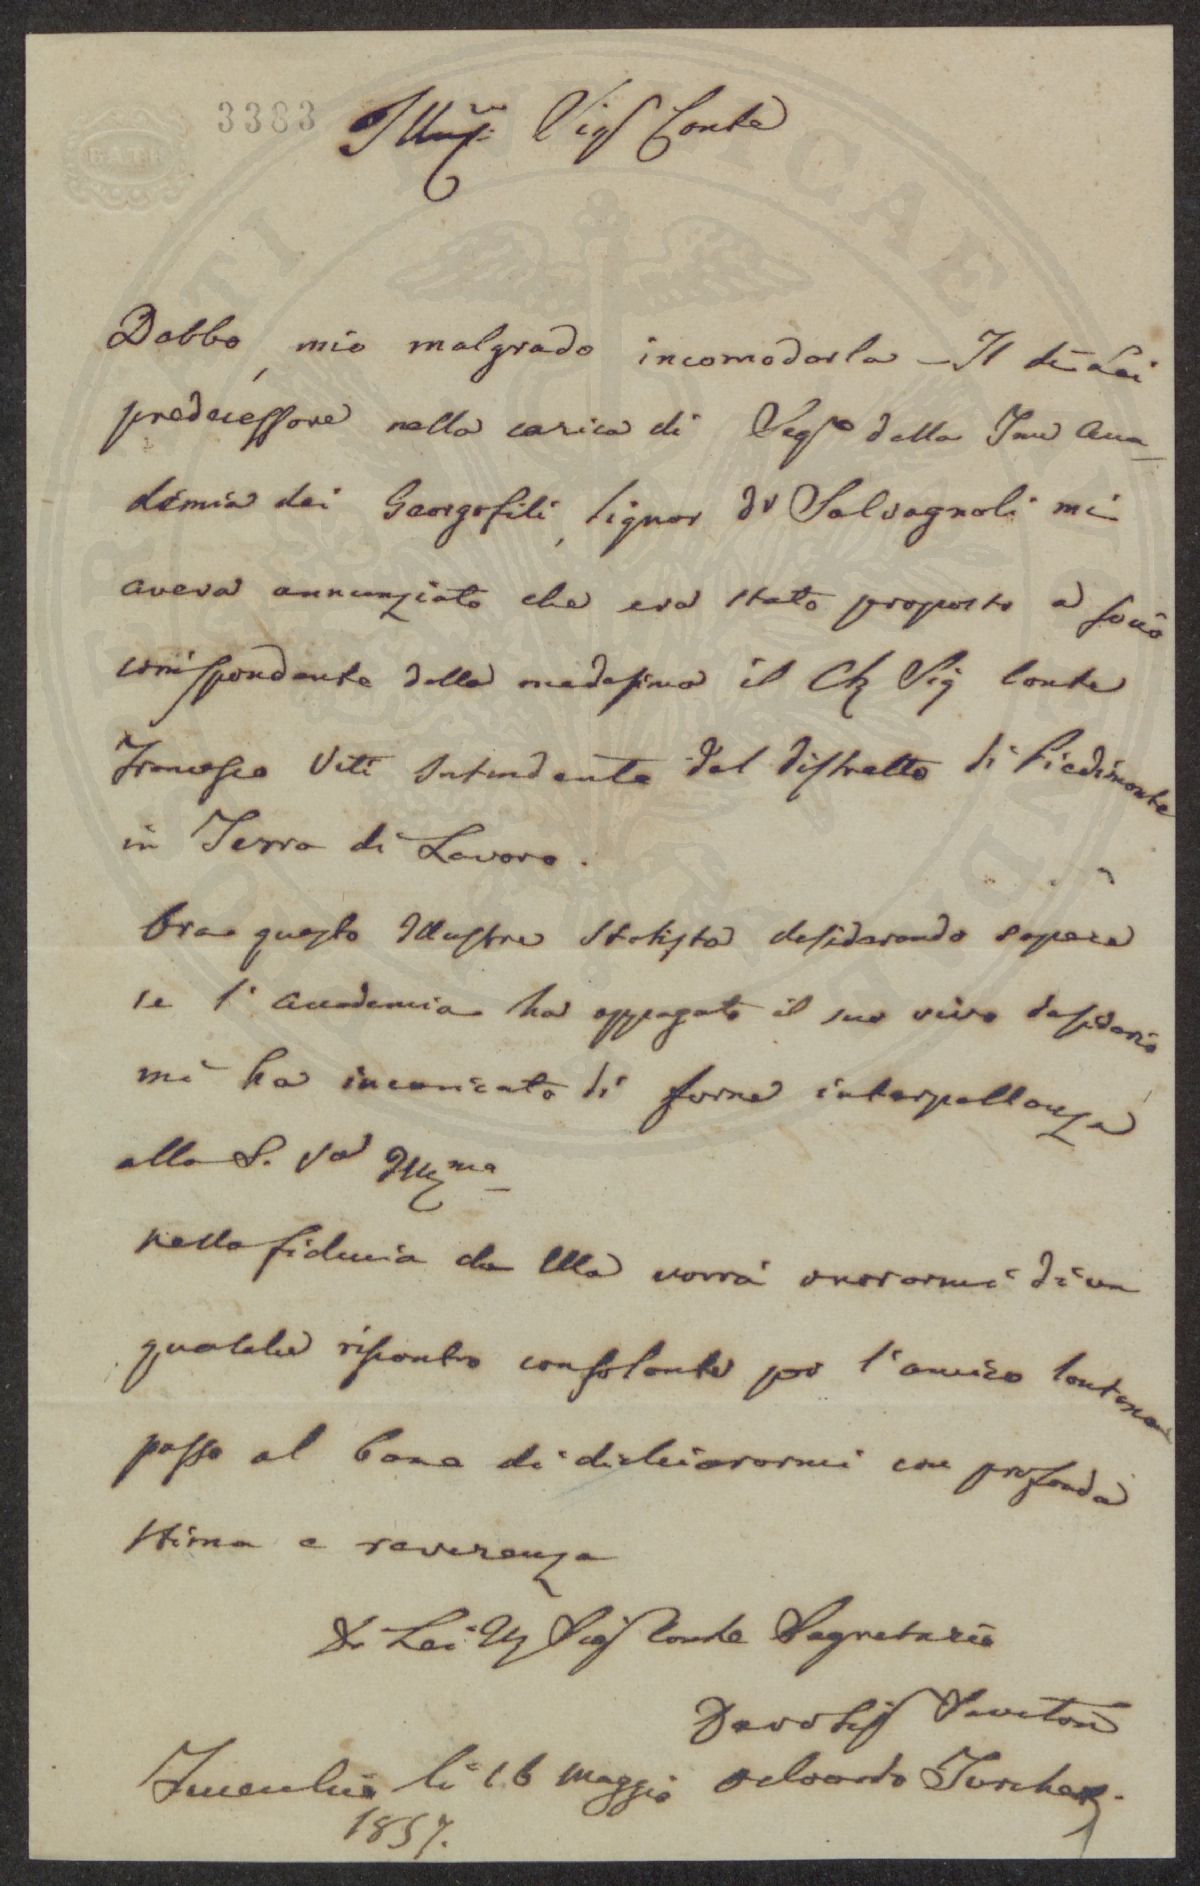 3383
BATH
Illmo Sigr Conte
Debbo, mio malgrado incomodarla – Il di Lei
predecessore nella carica di Segro della I e R Acca-
demia dei Georgofili, signor Dr Salvagnoli mi
aveva annunziato che era stato proposto a socio
corrispondente della medesima il Ch Sig Conte
Francesco Viti Intendente del distretto di Piedimonte
in Terra di Lavoro.
Ora questo Illustre Statista desiderando sapere
se l'Accademia ha appagato il suo vivo desiderio
mi ha incaricato di farne interpellanza
alla S. Va Illma
Nella fiducia che Ella vorrà onorarmi di un
qualche riscontro consolante per l'amico lontano
passo al bene di dichiararmi con profonda
stima e reverenza
Di Lei Ill Sigr Conte Segretario
Devotis Servitore
li 16 Maggio Odoardo
1857.